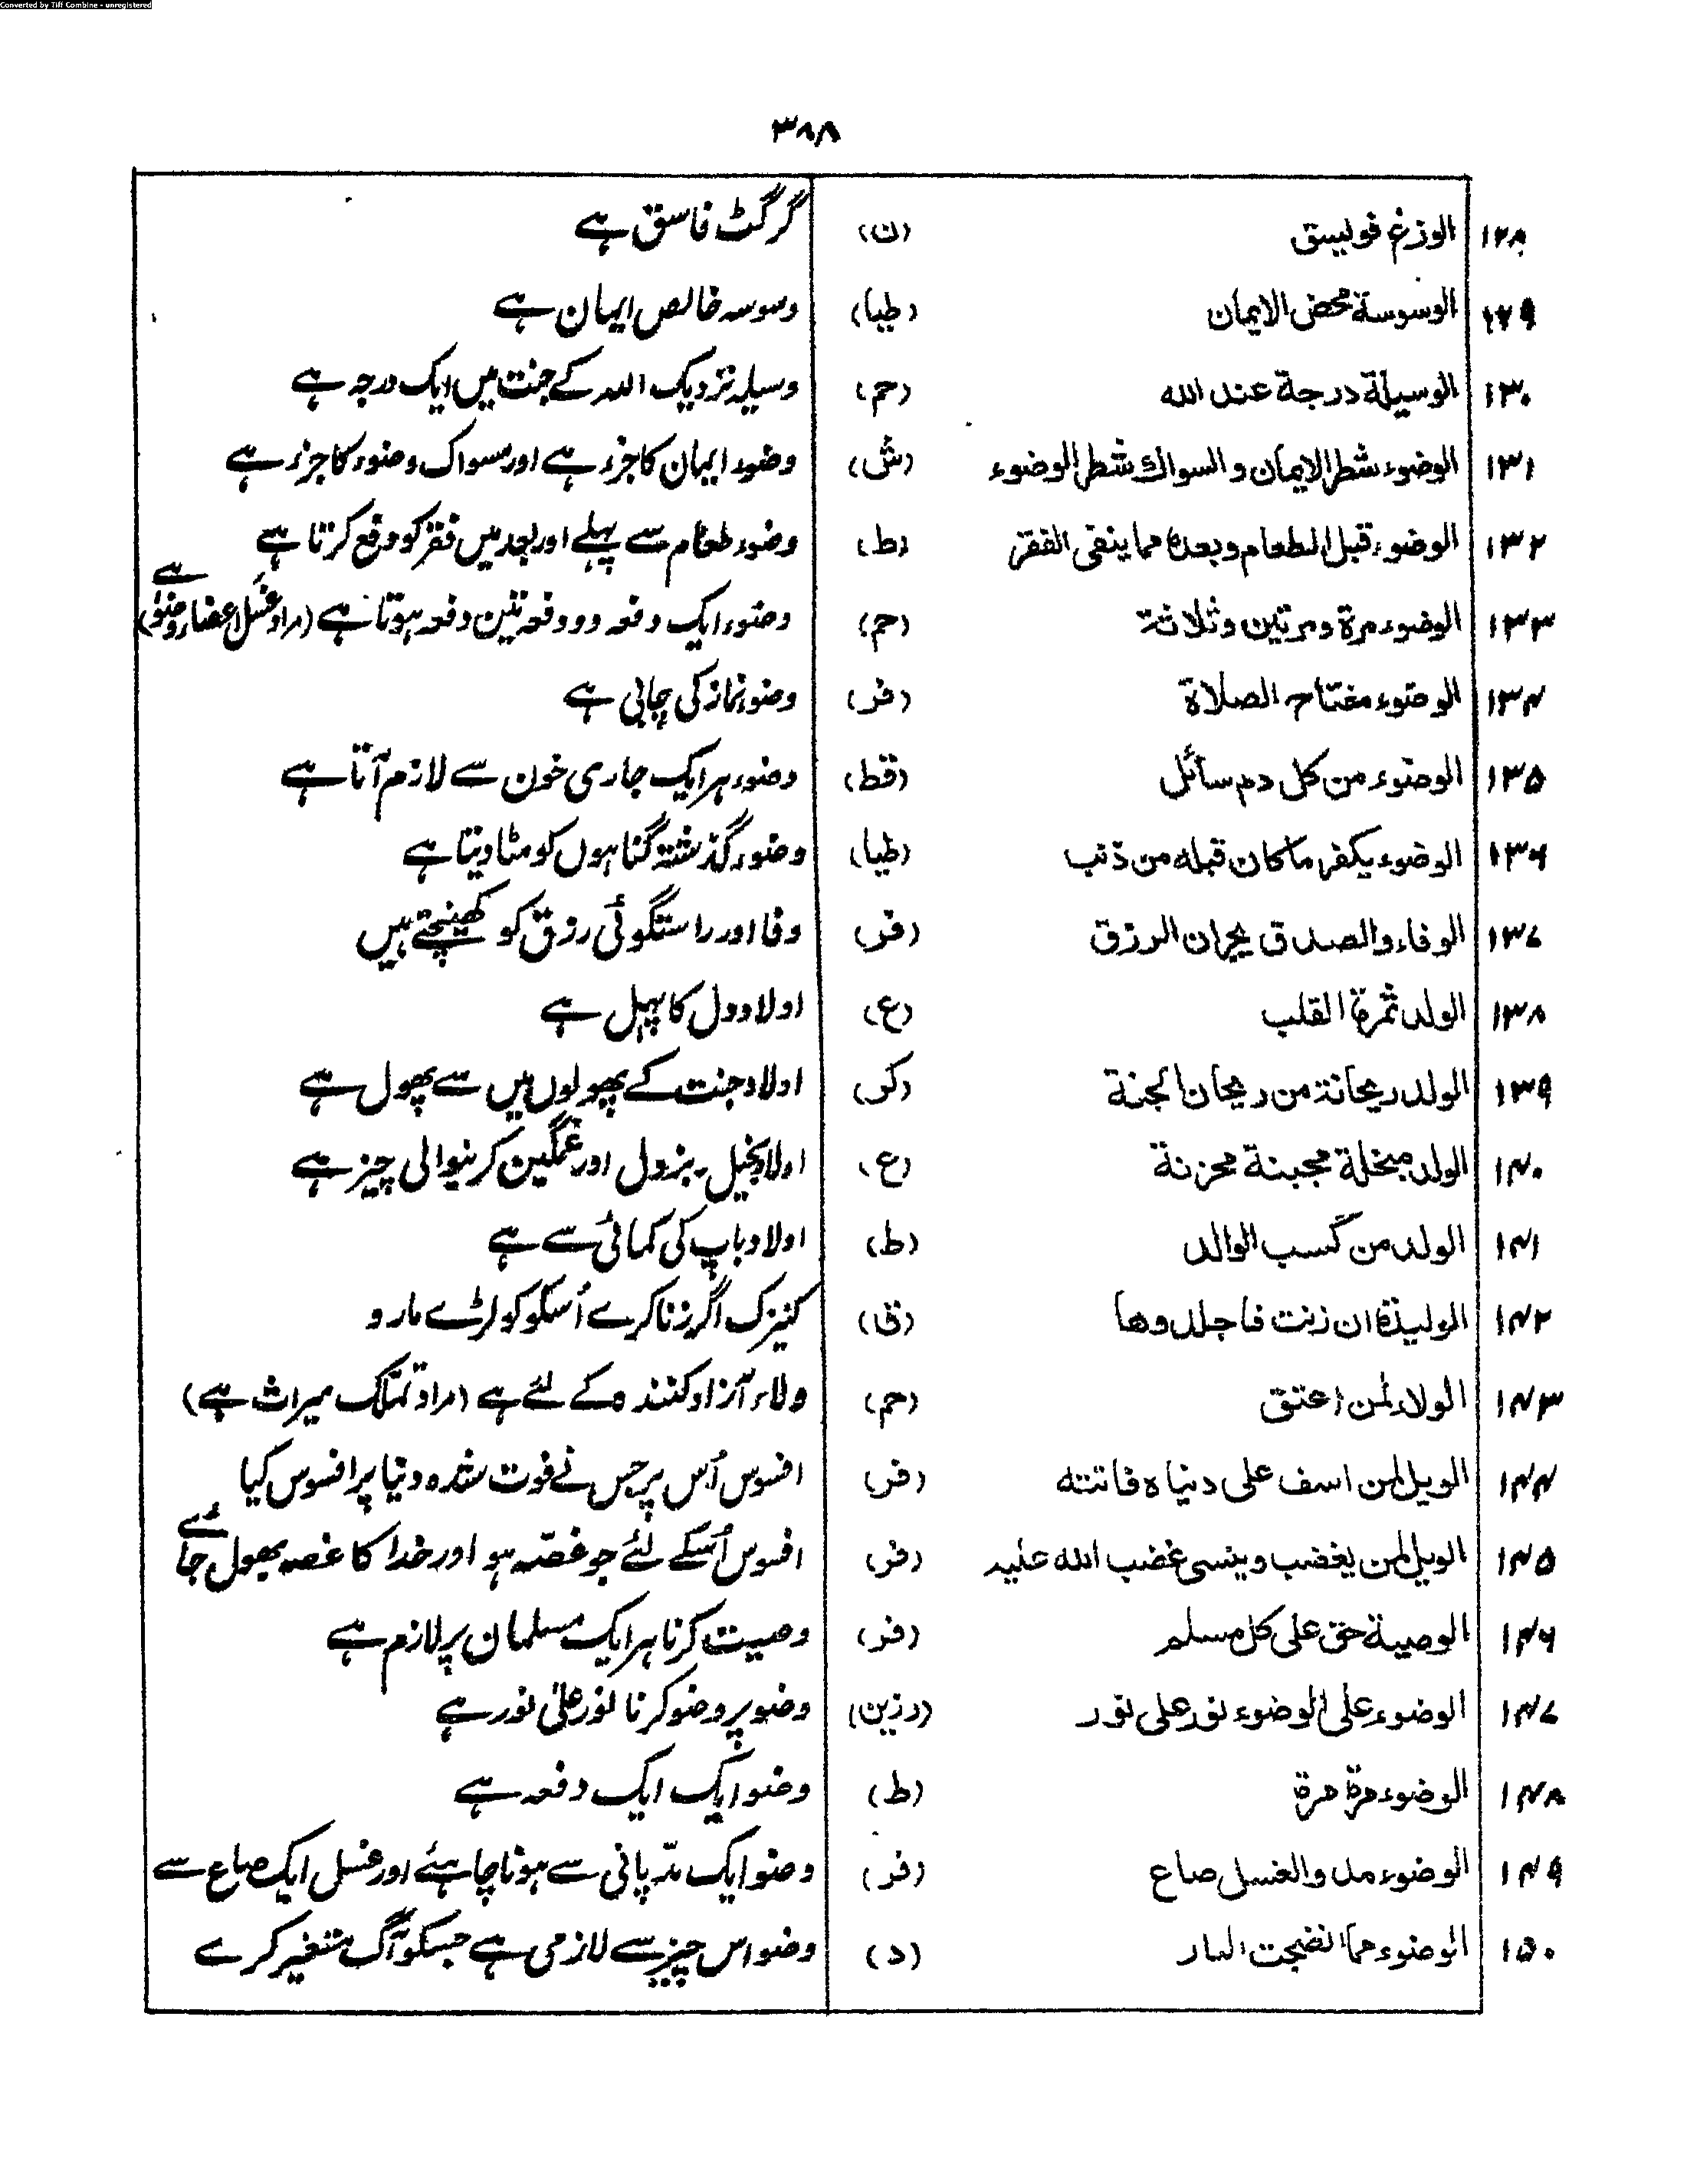 Converted by Tiff Combine - unregistered
۳۸۸
۱۲۸ الوزغ فویسق (ن) گرگٹ فاسق ہے
۱۲۹ الوسوسة محض الایمان (طیا) وسوسہ خالص ایمان ہے
۱۳۰ الوسیلة درجة عند الله (حم) وسیلہ نزدیک اللہ کے جنت میں ایک درجہ ہے
۱۳۱ الوضوء شطر الایمان والسواك شطر الوضوء (ش) وضوء ایمان کا جزء ہے اور مسواک وضوء کا جزء ہے
۱۳۲ الوضوء قبل الطعام وبعده مما ینفی الفقر (ط) وضوء طعام سے پہلے اور بعد میں فقر کو دفع کرتا ہے
۱۳۳ الوضوء مرة ومرتین وثلاثة (حم) وضوء ایک دفعہ دو دفعہ تین دفعہ ہوتا ہے (مراد غسل اعضاء وضوء ہے)
۱۳۴ الوضوء مفتاح الصلاة (فر) وضوء نماز کی چابی ہے
۱۳۵ الوضوء من کل دم سائل (قط) وضوء ہر ایک جاری خون سے لازم آتا ہے
۱۳۶ الوضوء یکفر ما کان قبله من ذنب (طیا) وضوء گذشتہ گناہوں کو مٹا دیتا ہے
۱۳۷ الوفاء والصدق یجران الرزق (فر) وفا اور راستگوئی رزق کو کھینچتے ہیں
۱۳۸ الولد ثمرة القلب (ع) اولاد دل کا پھل ہے
۱۳۹ الولد ریحانة من ریحان الجنة (کر) اولاد جنت کے پھولوں میں سے پھول ہے
۱۴۰ الولد مبخلة مجبنة محزنة (ع) اولاد بخیل ۔ بزدل اور غمگین کرنیوالی چیز ہے
۱۴۱ الولد من کسب الوالد (ط) اولاد باپ کی کمائی سے ہے
۱۴۲ الولیدة ان زنت فاجلدوها (ق) کنیزک اگر زنا کرے اُسکو کوڑے مارو
۱۴۳ الولاء لمن اعتق (حم) ولاء آزاد کنندہ کے لئے ہے (مراد تملک میراث ہے)
۱۴۴ الویل لمن اسف علی دنیاه فاتته (فر) افسوس اُس پر جس نے فوت شدہ دنیا پر افسوس کیا
۱۴۵ الویل لمن یغضب وینسی غضب الله علیه (فر) افسوس اُسکے لئے جو غصّہ ہو اور خدا کا غصہ بھول جائے
۱۴۶ الوصیة حق علی کل مسلم (فر) وصیت کرنا ہر ایک مسلمان پر لازم ہے
۱۴۷ الوضوء علی الوضوء نور علی نور (رزین) وضو پر وضو کرنا نور علیٰ نور ہے
۱۴۸ الوضوء مرة مرة (ط) وضو ایک ایک دفعہ ہے
۱۴۹ الوضوء مد والغسل صاع (فر) وضو ایک مدّ پانی سے ہونا چاہئے اور غسل ایک صاع سے
۱۵۰ الوضوء مما انضجت النار (د) وضو اس چیز سے لازمی ہے جسکو آگ متغیر کرے